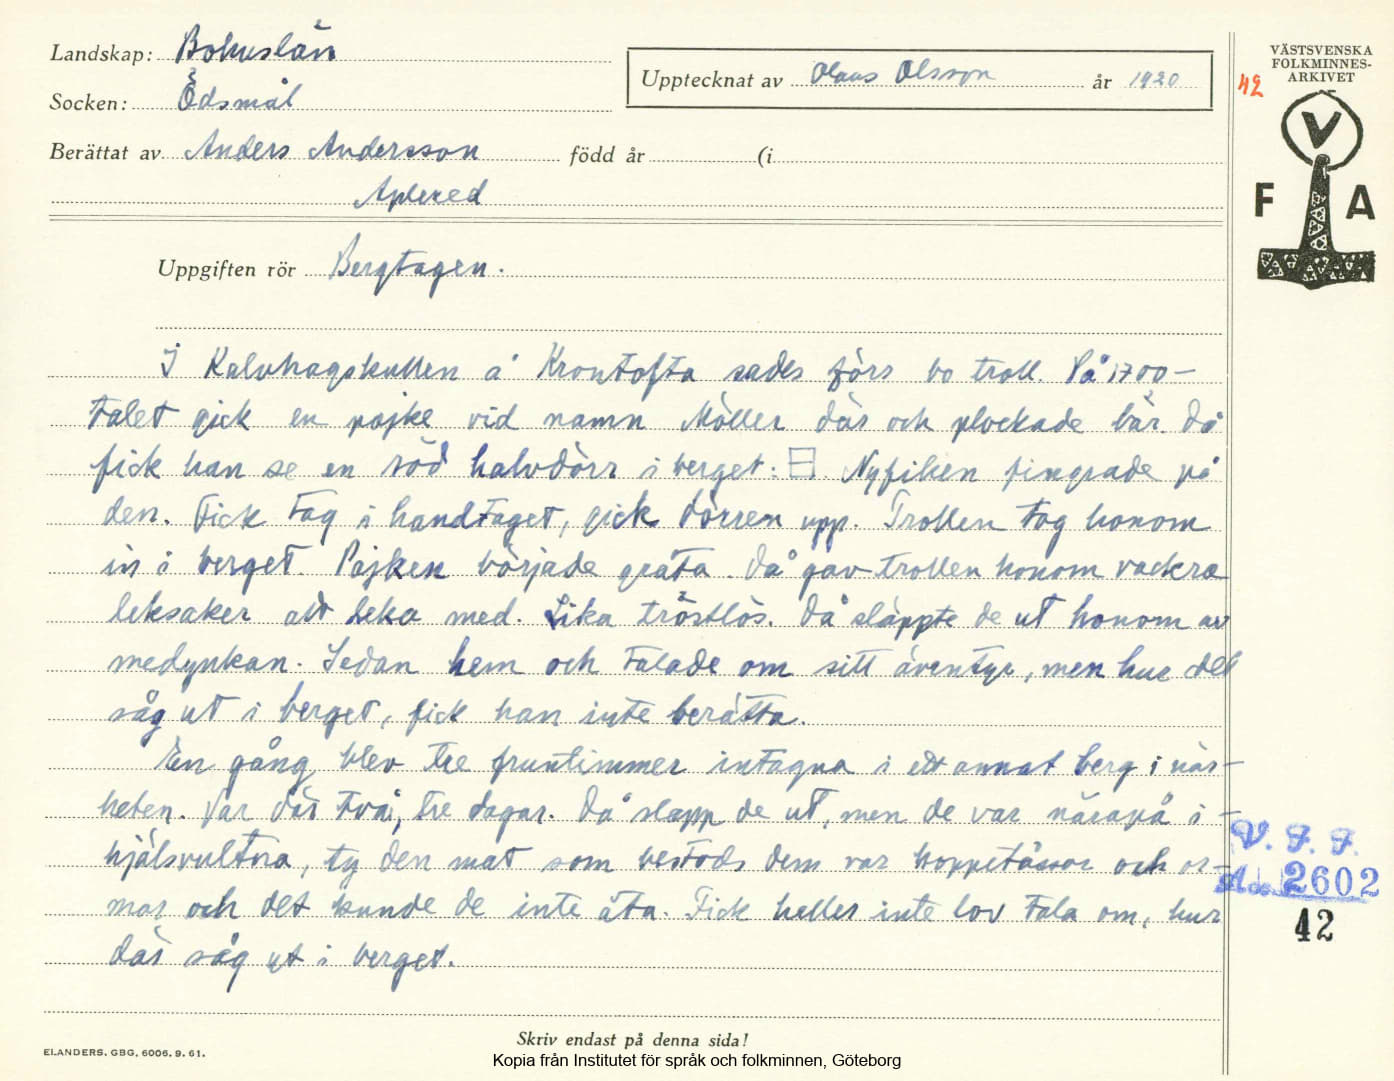 Landskap: Bohuslän
Upptecknat av Olaus Olsson år 1920
42
VÄSTSVENSKA
FOLKMINNES-
ARKIVET
V
F A
Socken: Ödsmål
Berättat av Anders Andersson född år (i
Aplered
Uppgiften rör Bergtagen.
I Kalvhagskullen å Krontofta sades förr bo troll. På 1700-
talet gick en pojke vid namn Möller där och plockade bär. Då
fick han se en röd halvdörr i berget: Nyfiken fingrade på
den. Fick tag i handtaget, gick dörren upp. Trollen tog honom
in i berget. Pojken började gråta. Då gav trollen honom vackra
leksaker att leka med. Lika tröstlös. Då släppte de ut honom av
medynkan. Sedan hem och talade om sitt äventyr, men hur det
såg ut i berget, fick han inte berätta.
En gång blev tre fruntimmer intagna i ett annat berg i när-
heten. Var där två, tre dagar. Då slapp de ut, men de var närapå i-
hjälsvultna, ty den mat som bestods dem var hoppetåssor och or-
mar och det kunde de inte äta. Fick heller inte lov tala om, hur
där såg ut i berget.
V. F. F.
Acc. 2602
42
Skriv endast på denna sida!
ELANDERS. GBG. 6006. 9. 61.
Kopia från Institutet för språk och folkminnen, Göteborg